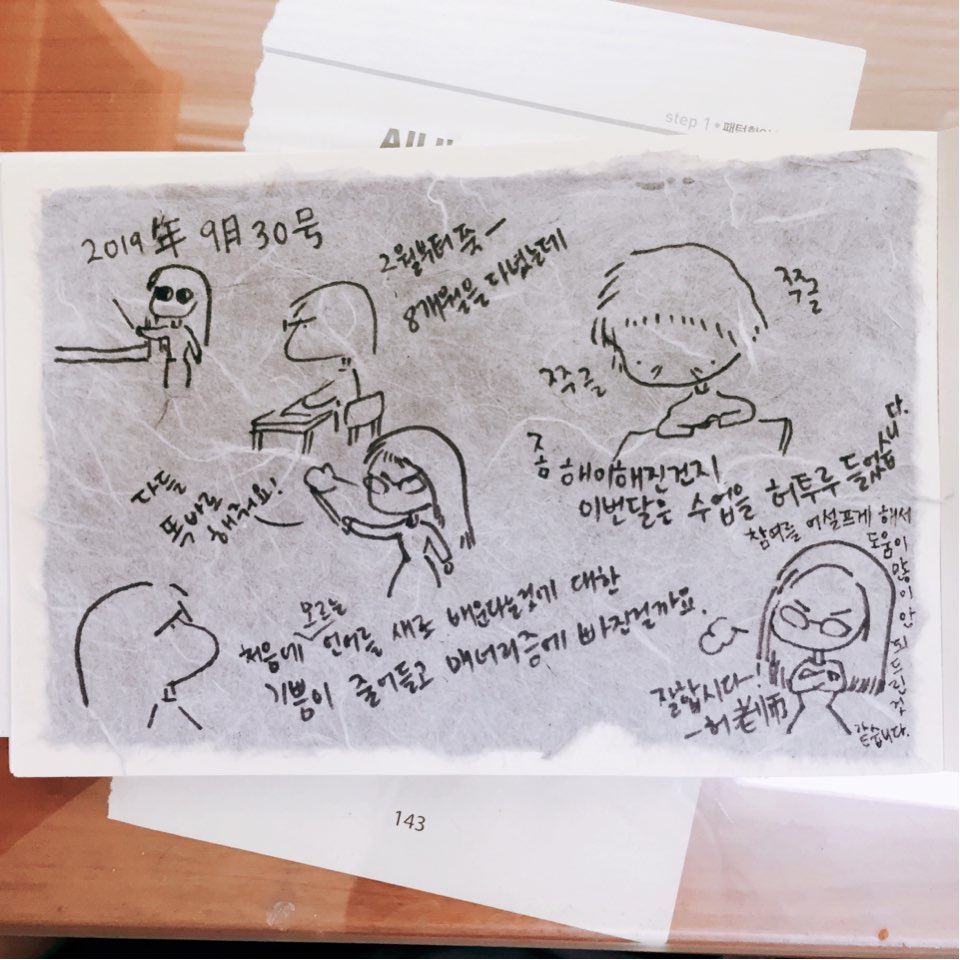 step 1 • 패턴
2019年 9月 30号
2월부터 쭉ㅡ
8개월을 다녔는데
쭈글
쭈글
좀 해이해진건지
이번달은 수업을 허투루 들었습니다.
참여를 어설프게 해서
도움이 많이 안 되드린 것
같습니다.
다들
똑바로
해줘요!
처음에 모르는 언어를 새로 배운다는것에 대한
기쁨이 줄어들고 매너리즘에 빠진걸까요.
잘합시다~!
-허老师
143